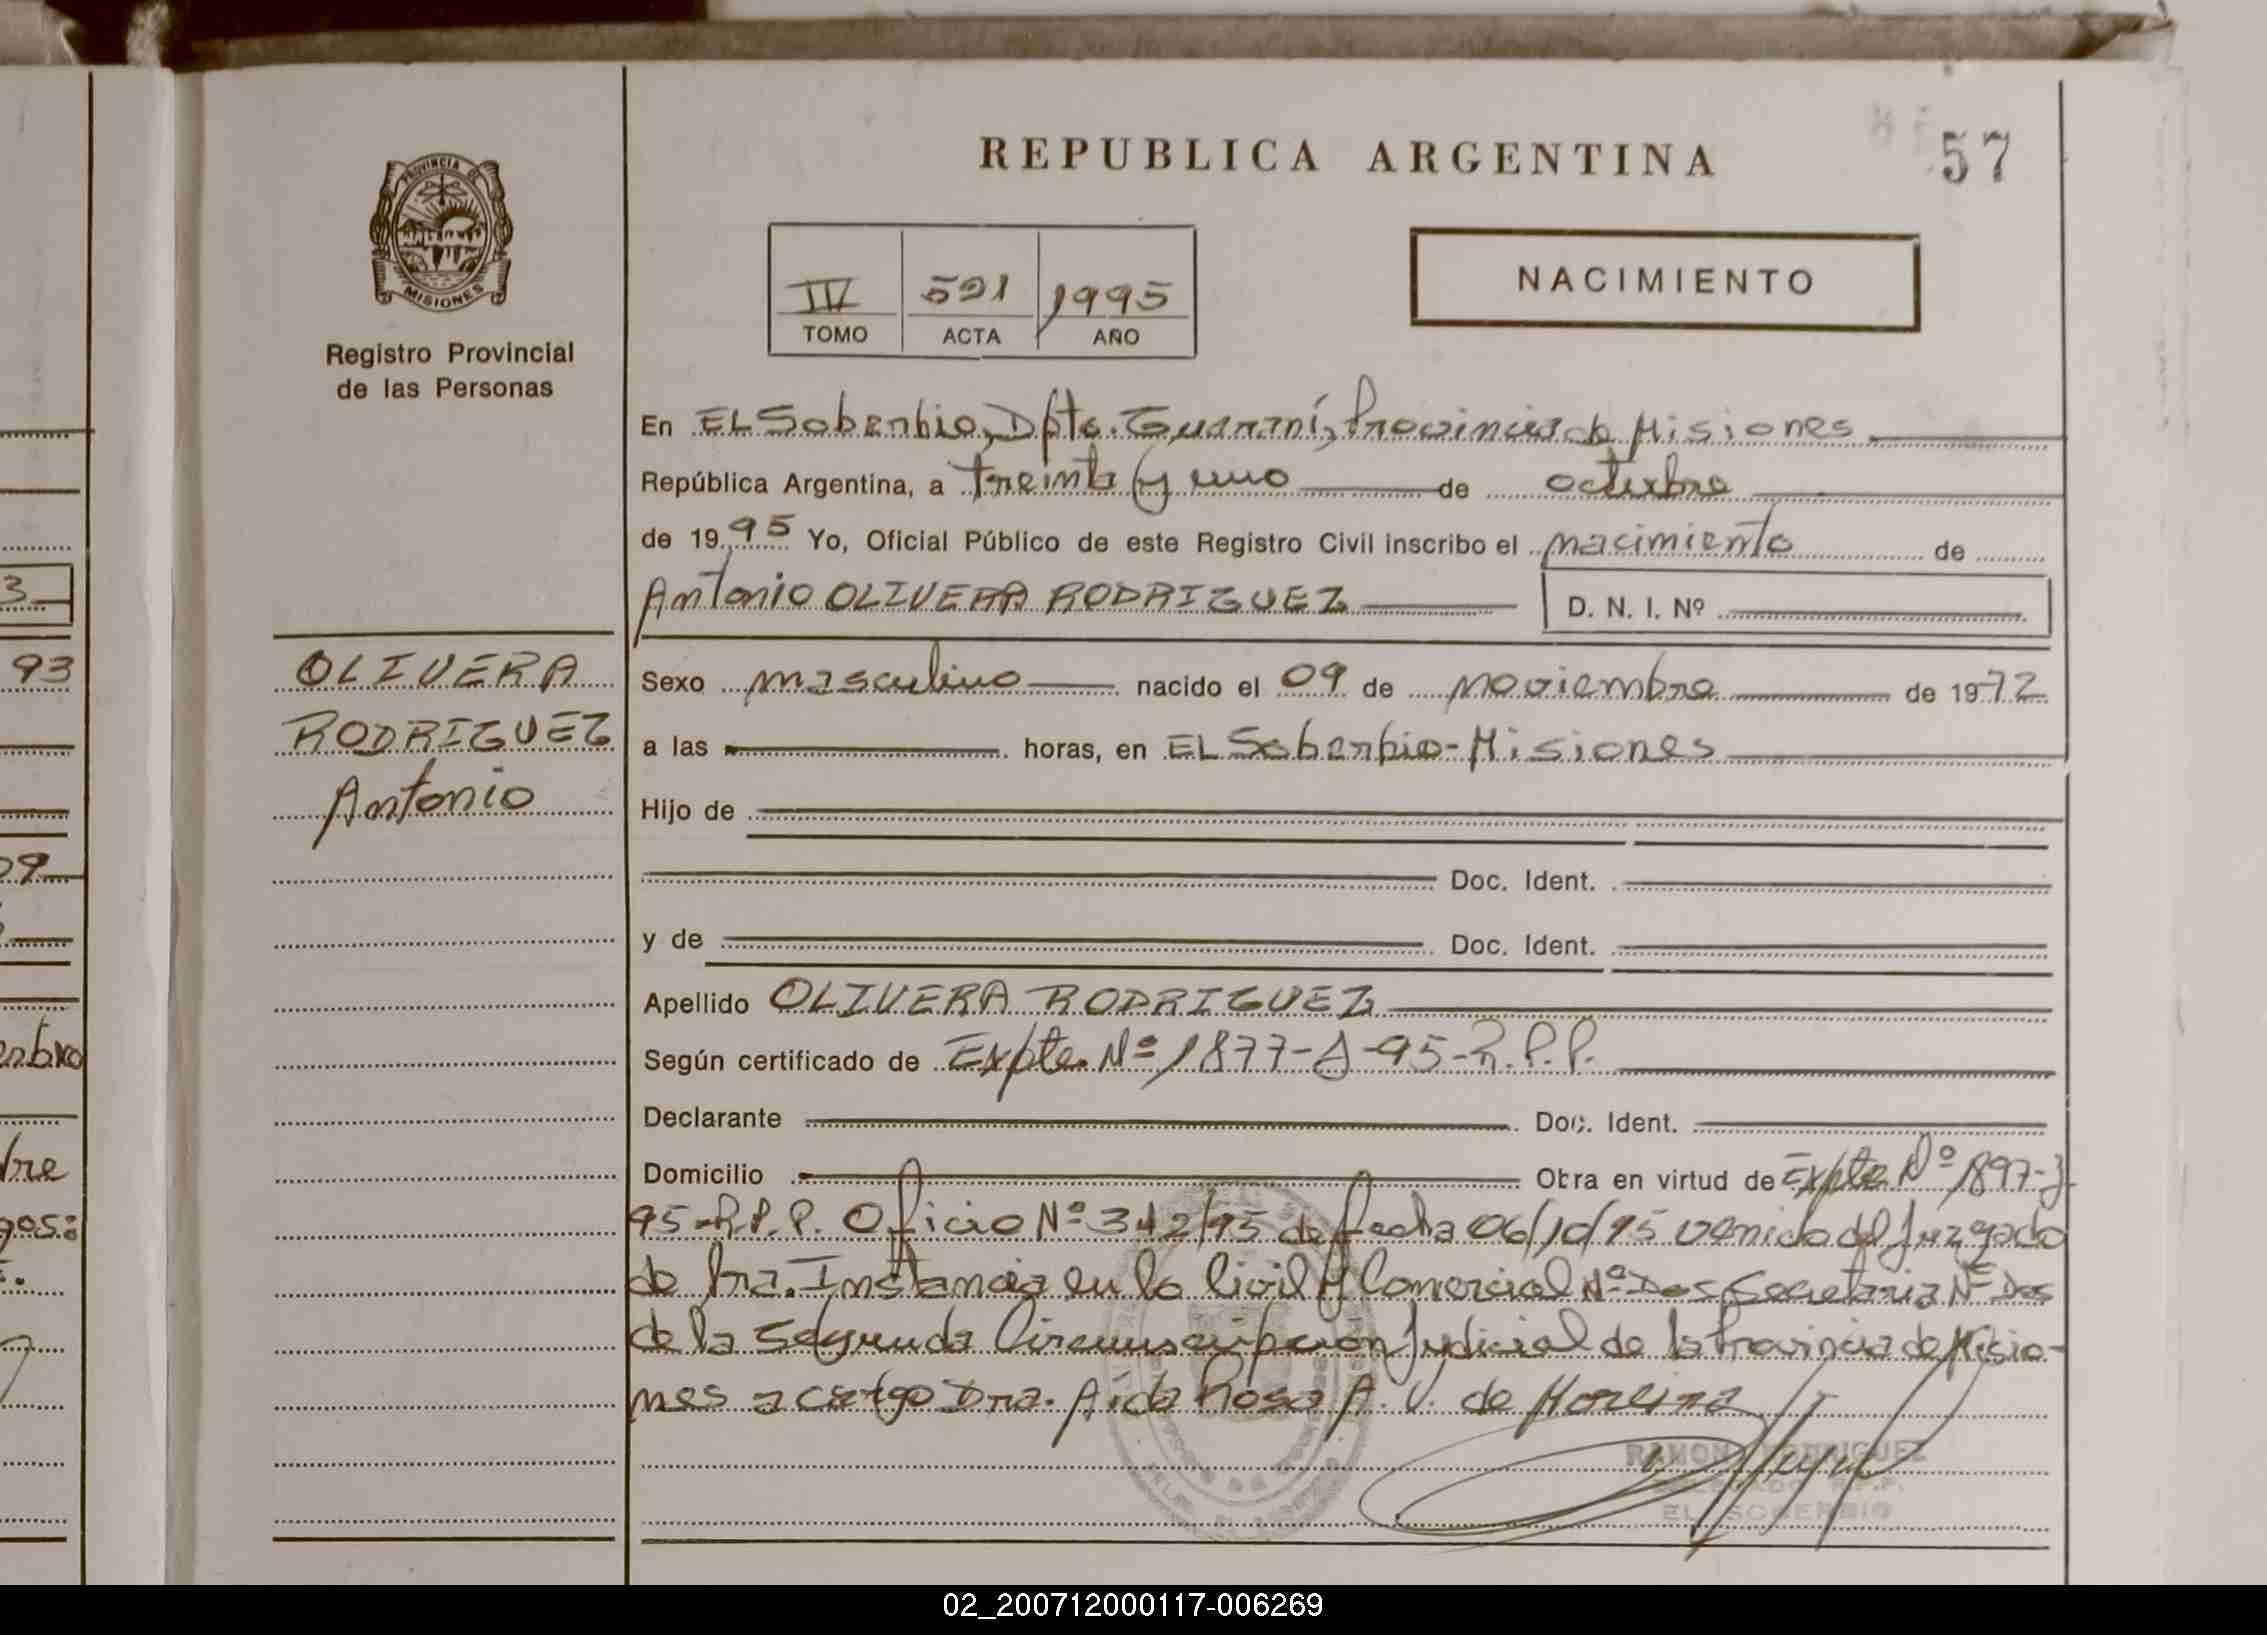 PROVINCIA DE
MISIONES
Registro Provincial
de las Personas
OLIVERA
RODRIGUEZ
Antonio
REPUBLICA ARGENTINA
57
IV 591 1995
TOMO ACTA AÑO
NACIMIENTO
En EL Soberbio, Dpto. Guaraní, Provincia de Misiones
República Argentina, a treinta y uno de octubre
de 1995 Yo, Oficial Público de este Registro Civil inscribo el nacimiento de
Antonio OLIVERA RODRIGUEZ D. N. I. Nº
Sexo masculino nacido el 09 de noviembre de 1972
a las horas, en EL Soberbio-Misiones
Hijo de
Doc. Ident.
y de Doc. Ident.
Apellido OLIVERA RODRIGUEZ
Según certificado de Expte. Nº 1877-A-95-R.P.P.
Declarante Doc. Ident.
Domicilio Obra en virtud de Expte Nº 1897-J-
95-R.P.P. Oficio Nº 342/95 de fecha 06/10/95 venido del Juzgado
de Pra. Instancia en lo Civil y Comercial Nº Dos Secretaria Nº Dos
de la Segunda Circunscripcion Judicial de la Provincia de Misio-
nes a cargo Dra. Aida Rosa A. V. de Moreira
RAMON RODRIGUEZ
DELEGADO R.P.P.
EL SOBERBIO
93
09
3
bre
02_200712000117-006269